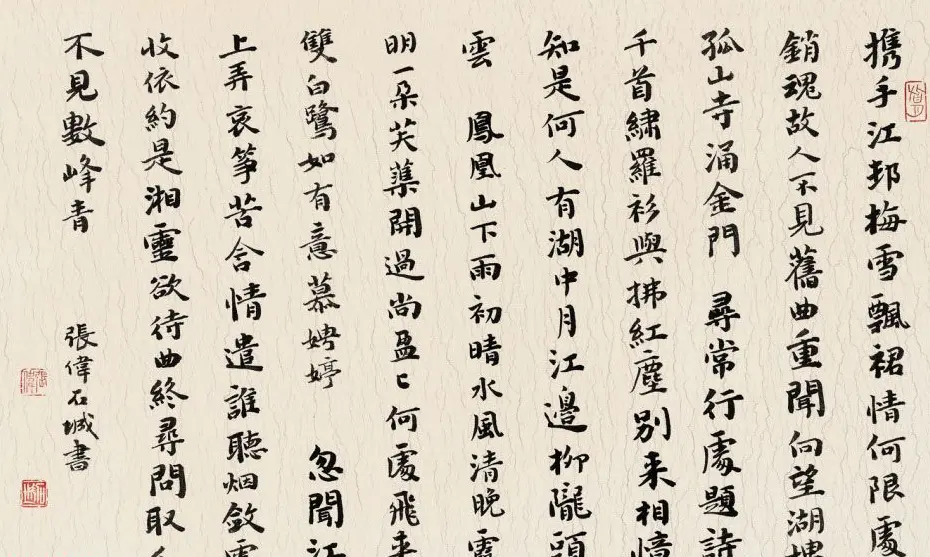 携手江邨梅雪飄裙情何限處
銷魂故人不見舊曲重聞向望湖樓
孤山寺涌金門 尋常行處題詩
千首繡羅衫與拂紅塵別来相憶
知是何人有湖中月江邊柳隴頭
雲 鳳凰山下雨初晴水風清晚霞
明一朵芙蕖開過尚盈〻何處飛来
雙白鷺如有意慕娉婷 忽聞江
上弄哀筝苦含情遣誰聽烟斂雲
收依約是湘靈欲待曲終尋問取
不見數峰青
張偉石城書